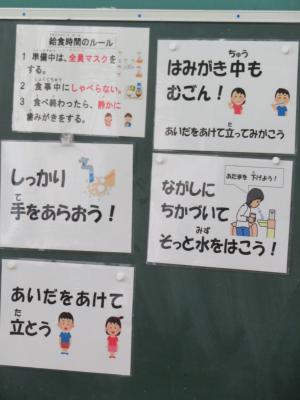 給食時間のルール
1 準備中は、全員マスクを
する。
2 食事中にしゃべらない。
3 食べ終わったら、静かに
歯みがきをする。
はみがき中も
むごん！
あいだをあけて立ってみがこう
しっかり
手をあらおう！
あたまを下げよう！
ながしに
ちかづいて
そっと水をはこう！
あいだをあけて
立とう